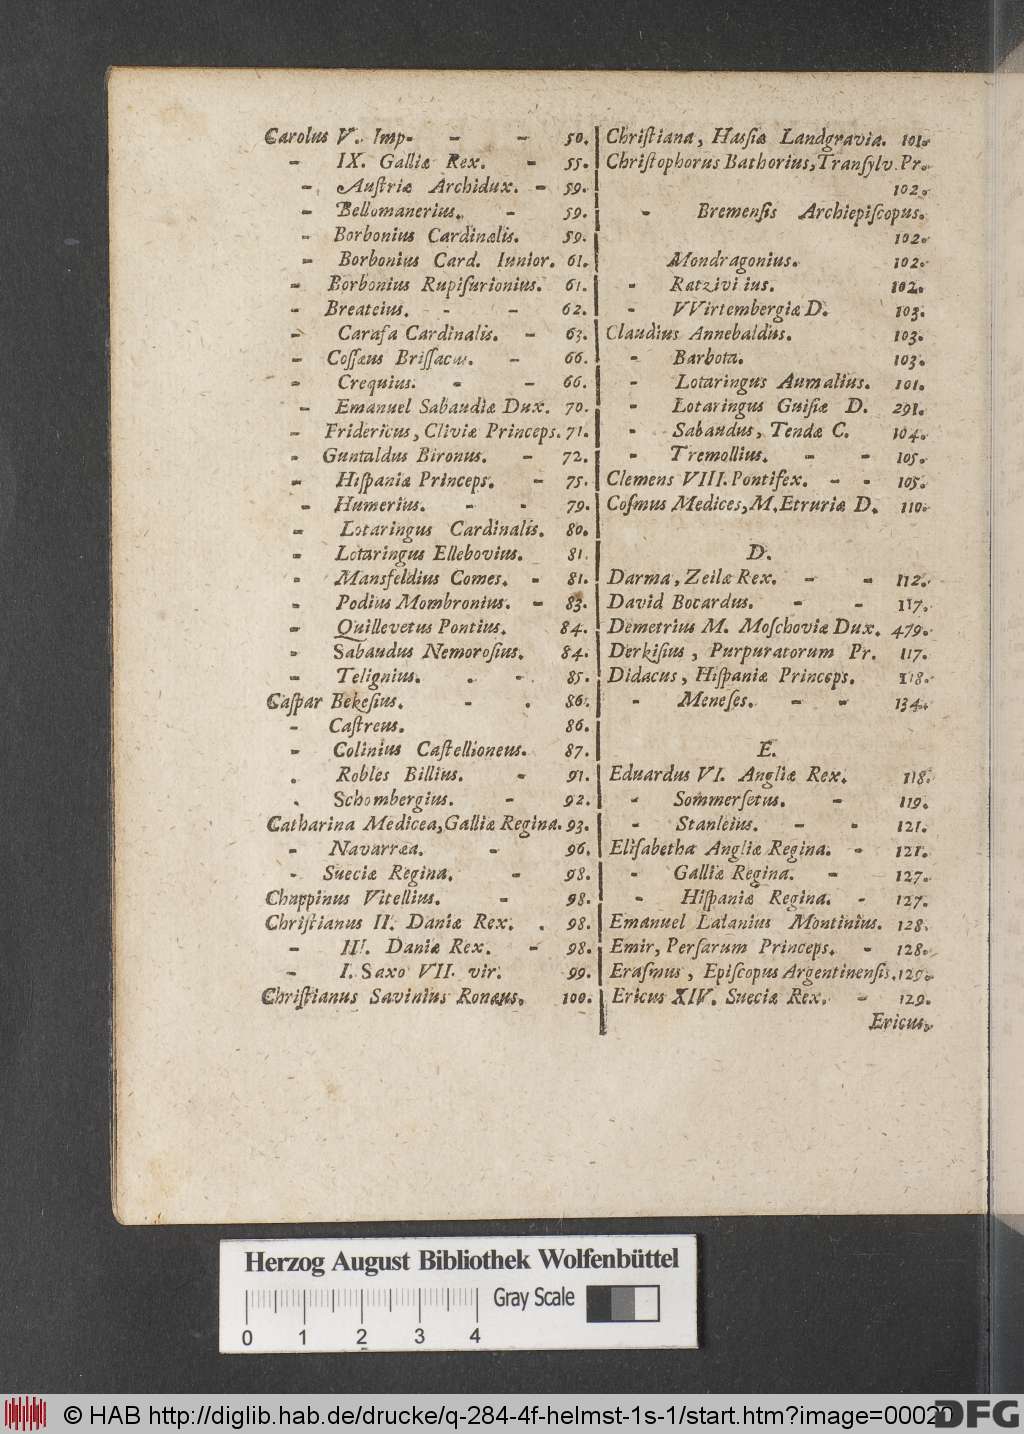 Carolus V. Imp. - - 50.
- IX. Galliæ Rex. - 55.
- Auſtriæ Archidux. - 59.
- Bellomanerius. - 59.
- Borbonius Cardinalis. 59.
- Borbonius Card. Iunior. 61.
- Borbonius Rupiſurionius. 61.
- Breateius. - - 62.
- Carafa Cardinalis. - 63.
- Coſſæus Briſſacus. - 66.
- Crequius. - - 66.
- Emanuel Sabaudiæ Dux. 70.
- Fridericus, Cliviæ Princeps. 71.
- Guntaldus Bironus. - 72.
- Hiſpaniæ Princeps. - 75.
- Humerius. - - 79.
- Lotaringus Cardinalis. 80.
- Lotaringus Ellebovius. 81.
- Mansfeldius Comes. - 81.
- Podius Mombronius. - 83.
- Quillevetus Pontius. 84.
- Sabaudus Nemoroſius. 84.
- Telignius. . - 85.
Caſpar Bekeſius. - . 86.
- Caſtreus. 86.
- Colinius Caſtellioneus. 87.
. Robles Billius. - 91.
. Schombergius. - 92.
Catharina Medicea, Galliæ Regina. 93.
- Navarræa. - 96.
- Sueciæ Regina. - 98.
Chappinus Vitellius. - 98.
Chriſtianus II. Daniæ Rex. . 98.
- III. Daniæ Rex. - 98.
- I. Saxo VII. vir. 99.
Chriſtianus Savinius Ronæus. 100.
Chriſtiana, Haſſiæ Landgravia. 101.
Chriſtophorus Bathorius, Tranſylv. Pr.
102.
- Bremenſis Archiepiſcopus.
102.
Mondragonius. 102.
- Ratzivilius. 102.
- VVirtembergiæ D. 103.
Claudius Annebaldus. 103.
- Barbota. 103.
- Lotaringus Aumalius. 101.
- Lotaringus Guiſiæ D. 291.
- Sabaudus, Tendæ C. 104.
- Tremollius. - - 105.
Clemens VIII. Pontifex. - - 105.
Coſmus Medices, M. Etruriæ D. 110.
D.
Darma, Zeilæ Rex. - - 112.
David Bocardus. - - 117.
Demetrius M. Moſchoviæ Dux. 479.
Derkiſius, Purpuratorum Pr. 117.
Didacus, Hiſpaniæ Princeps. 118.
- Meneſes. - - 134.
E.
Eduardus VI. Angliæ Rex. 118.
- Sommerſetus. - 119.
- Stanleius. - - 121.
Eliſabetha Angliæ Regina. - 121.
- Galliæ Regina. - 127.
- Hiſpaniæ Regina. - 127.
Emanuel Lalanius Montinius. 128.
Emir, Perſarum Princeps. - 128.
Eraſmus, Epiſcopus Argentinenſis. 129.
Ericus XIV. Sueciæ Rex. - 129.
Ericus.
Herzog August Bibliothek Wolfenbüttel
Gray Scale
0 1 2 3 4
© HAB http://diglib.hab.de/drucke/q-284-4f-helmst-1s-1/start.htm?image=00020
DFG